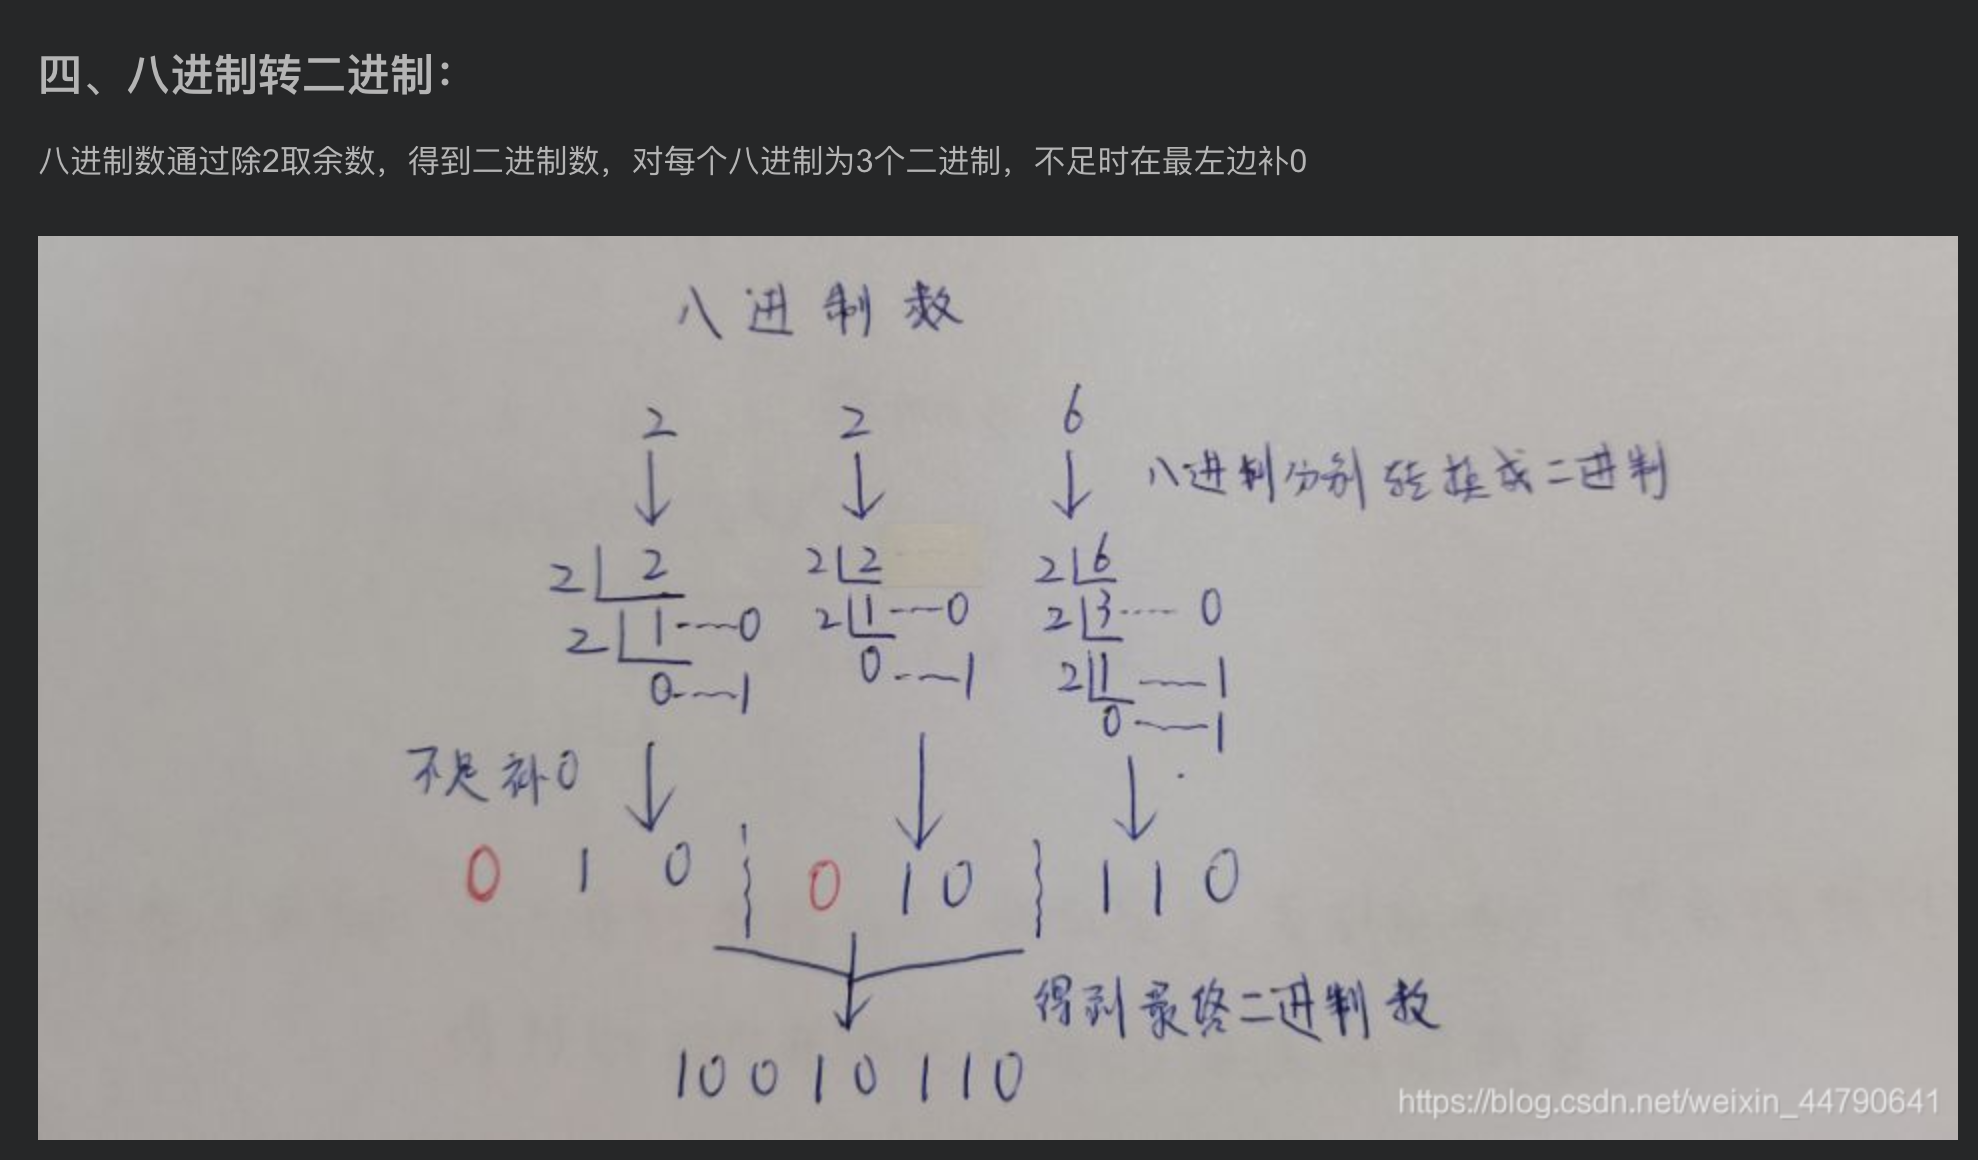 四、八进制转二进制：
八进制数通过除2取余数，得到二进制数，对每个八进制为3个二进制，不足时在最左边补0
八进制数
2 2 6
八进制分别转换成二进制
2 2 2 2 2 6
2 1 ---0 2 1 ---0 2 3 ---- 0
0 ---1 0 ---1 2 1 ---1
0 ---1
不足补0
0 1 0 0 1 0 1 1 0
得到最终二进制数
10010110
https://blog.csdn.net/weixin_44790641